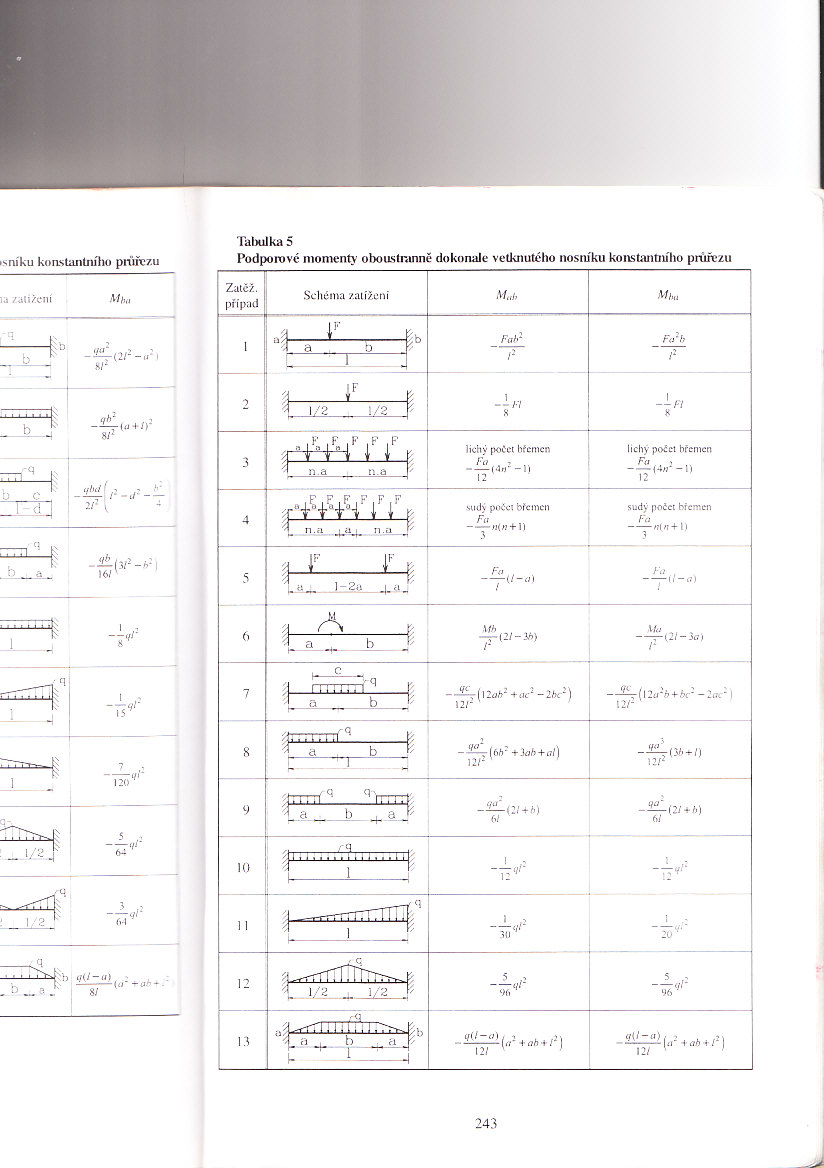 osníku konstantního průřezu
na zatížení M_ba
q b b l -qa²/8l² (2l² - a²)
b -qb²/8l² (a + l)²
q b c l-d -qbd/2l² (l² - d² - b²/4)
q b a -qb/16l (3l² - b²)
l -1/8 ql²
q l -1/15 ql²
l -7/120 ql²
q l/2 -5/64 ql²
q l/2 -3/64 ql²
q b b a q(l-a)/8l (a² + ab + l²)
Tabulka 5
Podporové momenty oboustranně dokonale vetknutého nosníku konstantního průřezu
Zatěž. případ Schéma zatížení M_ab M_ba
1 a F b a b l -Fab²/l² -Fa²b/l²
2 F l/2 l/2 -1/8 Fl -1/8 Fl
3 F F F F F a a a n.a n.a lichý počet břemen -Fa/12 (4n² - 1) lichý počet břemen -Fa/12 (4n² - 1)
4 F F F F F F a a a a n.a a n.a sudý počet břemen -Fa/3 n(n + 1) sudý počet břemen -Fa/3 n(n + 1)
5 F F a l-2a a -Fa/l (l - a) -Fa/l (l - a)
6 M a b Mb/l² (2l - 3b) -Ma/l² (2l - 3a)
7 c q a b -qc/12l² (12ab² + ac² - 2bc²) -qc/12l² (12a²b + bc² - 2ac²)
8 q a b l -qa²/12l² (6b² + 3ab + al) -qa³/12l² (3b + l)
9 q q a b a -qa²/6l (2l + b) -qa²/6l (2l + b)
10 q l -1/12 ql² -1/12 ql²
11 q l -1/30 ql² -1/20 ql²
12 q l/2 l/2 -5/96 ql² -5/96 ql²
13 a q b a b a l -q(l-a)/12l (a² + ab + l²) -q(l-a)/12l (a² + ab + l²)
243